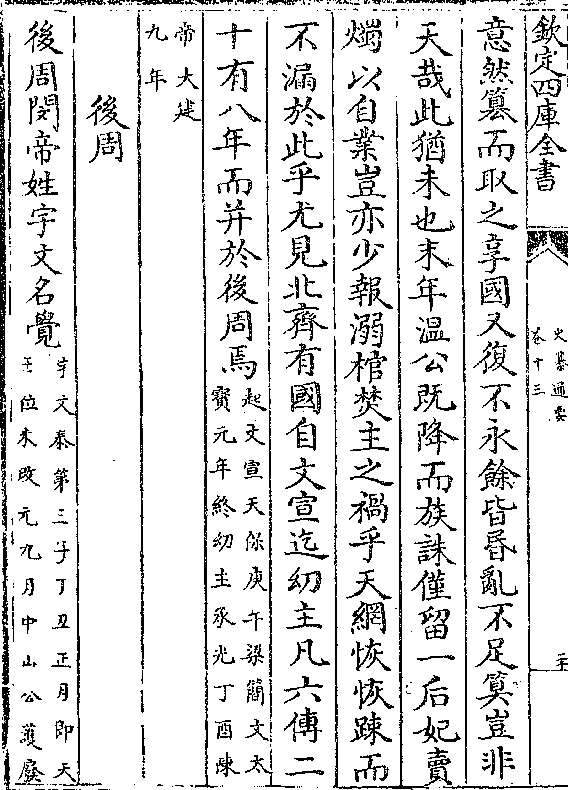 欽定四庫全書
史纂通要
卷十三
二十
意然篡而取之享國又復不永餘皆昏亂不足算豈非
天哉此猶未也末年溫公既降而族誅僅留一后妃賣
燭以自業豈亦少報溺棺焚主之禍乎天網恢恢踈而
不漏於此乎尤見北齊有國自文宣迄幼主凡六傳二
十有八年而并於後周焉起文宣天保庚午梁簡文太
寶元年終幼主承光丁酉陳
帝大建
九年
後周
後周閔帝姓宇文名覺宇文泰第三子丁丑正月即天
王位未改元九月中山公護廢